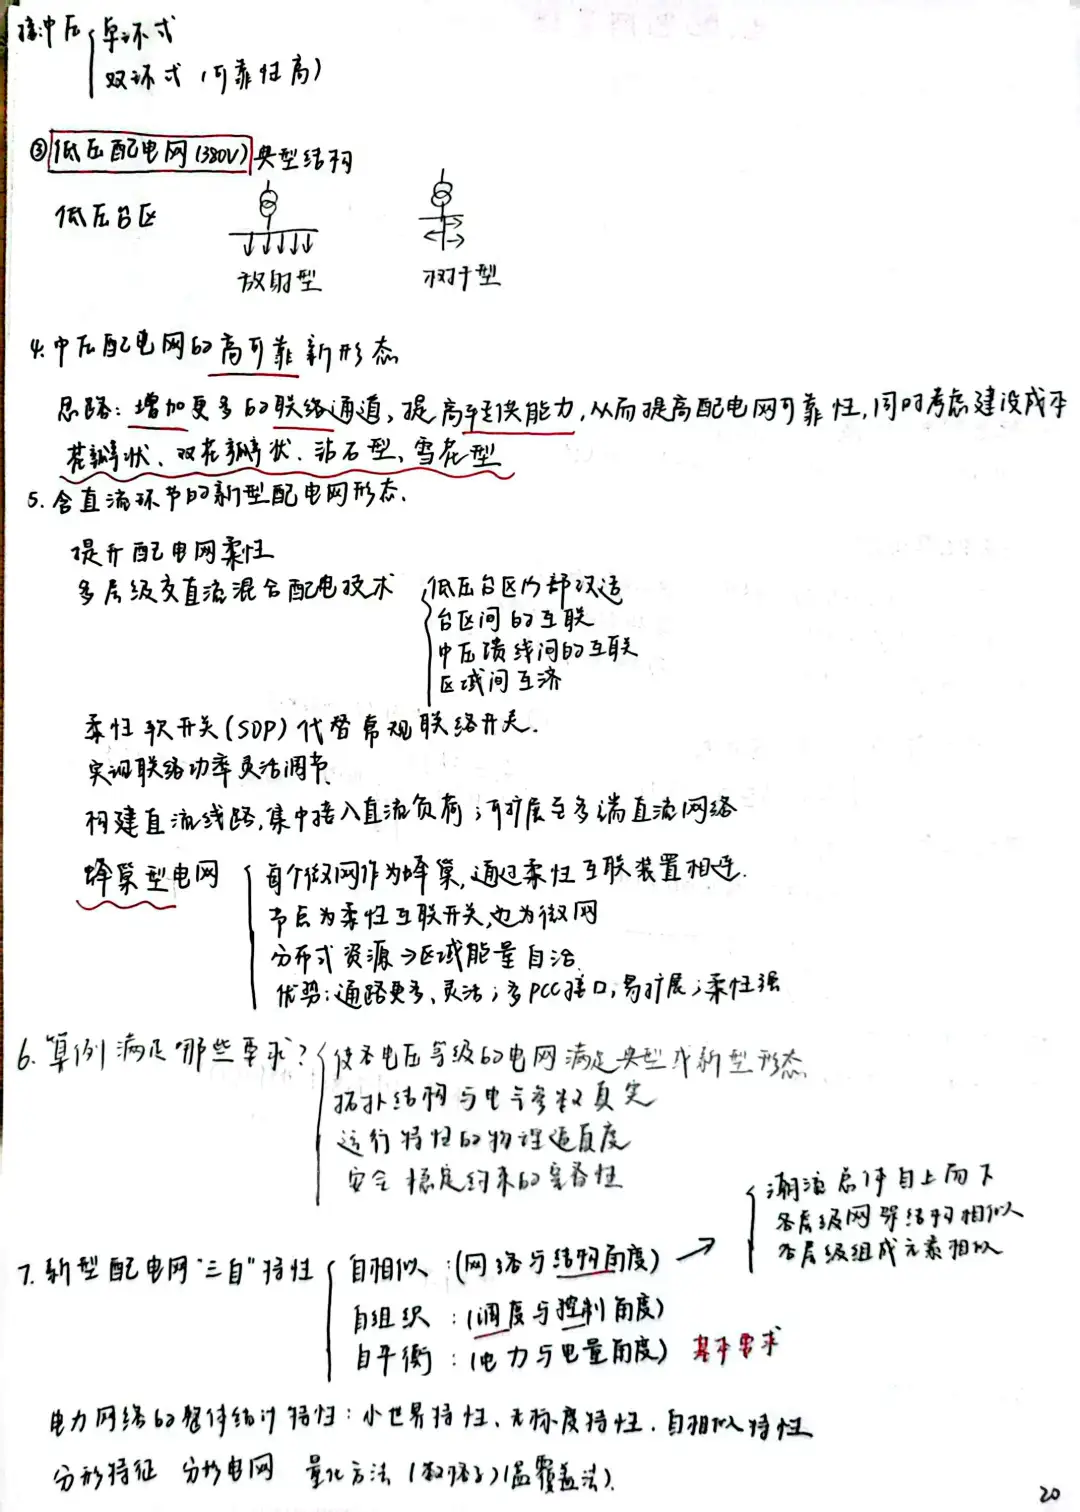 接中压 单环式
双环式 (可靠性高)
③ 低压配电网(380V) 典型结构
低压台区
放射型 树干型
4. 中压配电网的高可靠新形态
思路: 增加更多的联络通道, 提高转供能力, 从而提高配电网可靠性, 同时考虑建设成本
花瓣状、双花瓣状、钻石型、雪花型
5. 含直流环节的新型配电网形态.
提升配电网柔性
多层级交直流混合配电技术 低压台区内部改造
台区间的互联
中压馈线间的互联
区域间互济
柔性软开关(SOP)代替常规联络开关.
实现联络功率灵活调节.
构建直流线路, 集中接入直流负荷; 可扩展至多端直流网络
蜂巢型电网 每个微网作为蜂巢, 通过柔性互联装置相连.
节点为柔性互联开关, 也为微网
分布式资源→区域能量自治.
优势: 通路更多、灵活; 多PCC接口, 易扩展; 柔性强
6. 算例满足哪些要求? 使各电压等级的电网满足典型或新型形态
拓扑结构与电气参数真实
运行特性的物理逼真度
安全稳定约束的完备性
潮流总体自上而下
各层级网架结构相似
各层级组成元素相似
7. 新型配电网"三自"特性 自相似: (网络与结构角度) →
自组织: (调度与控制角度)
自平衡: (电力与电量角度) 基本要求
电力网络的整体统计特性: 小世界特性、无标度特性. 自相似特性
分形特征 分形电网 量化方法 (盒覆盖法).
20